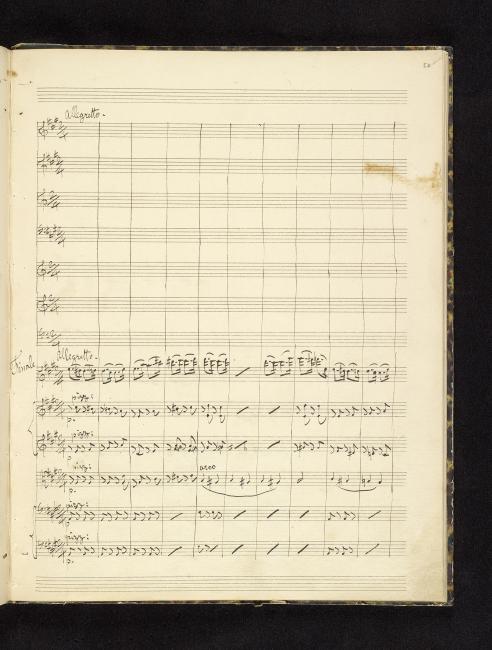 Allegretto.
Finale
Allegretto.
pizz:
p.
pizz:
p.
pizz:
arco
p.
pizz:
pizz:
p.